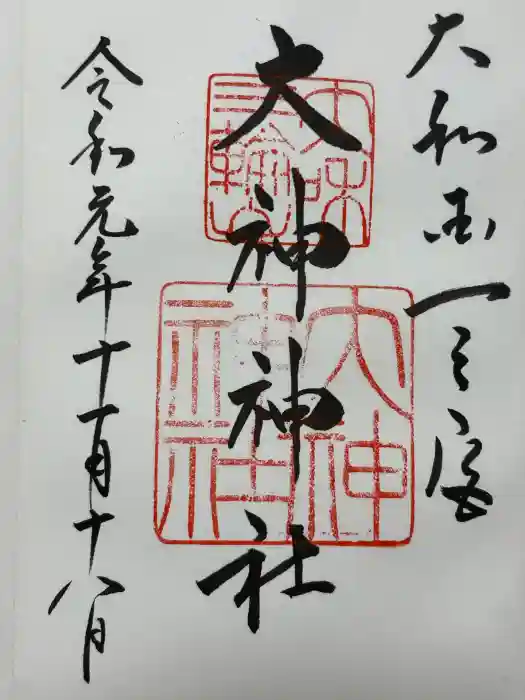 大和国一之宮
大神神社
令和元年十一月十八日
大神
神社